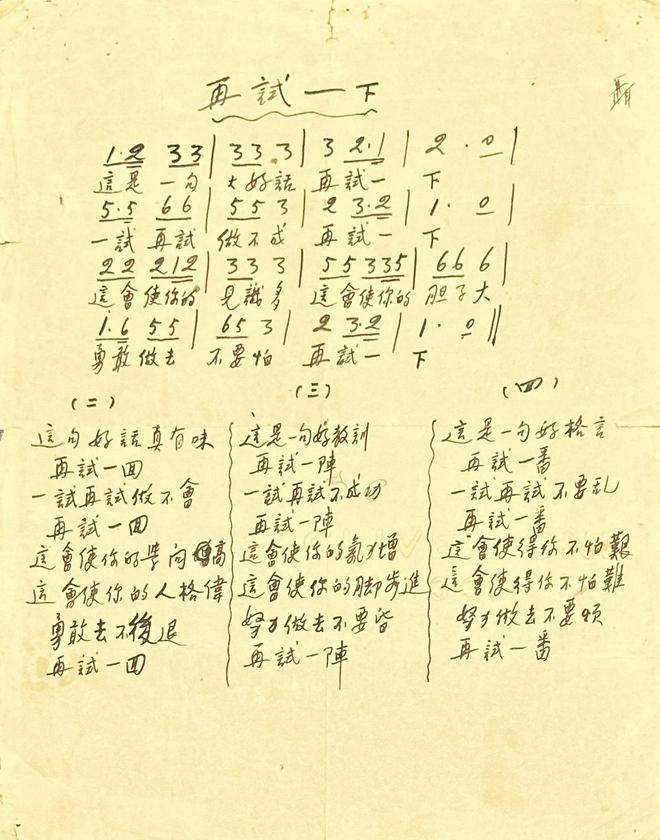 再試一下
1·2 33 | 33 3 | 3 2·1 | 2 · 0 |
這是 一句 大好話 再試一 下
5·5 66 | 55 3 | 2 3·2 | 1· 0 |
一試 再試 做不成 再試一 下
22 212 | 33 3 | 55 335 | 66 6 |
這會使你的 見識多 這會使你的 胆子大
1·6 55 | 65 3 | 2 3·2 | 1· 0 ||
勇敢做去 不要怕 再試一 下
(二)
這句好話真有味
再試一回
一試再試做不會
再試一回
這會使你的學問高
這會使你的人格偉
勇敢去不後退
再試一回
(三)
這是一句好教訓
再試一陣
一試再試不成功
再試一陣
這會使你的氣力增
這會使你的脚步進
努力做去不要
再試一陣
(四)
這是一句好格言
再試一番
一試再試不要乱
再試一番
這會使得你不怕艱
這會使得你不怕難
努力做去不要煩
再試一番